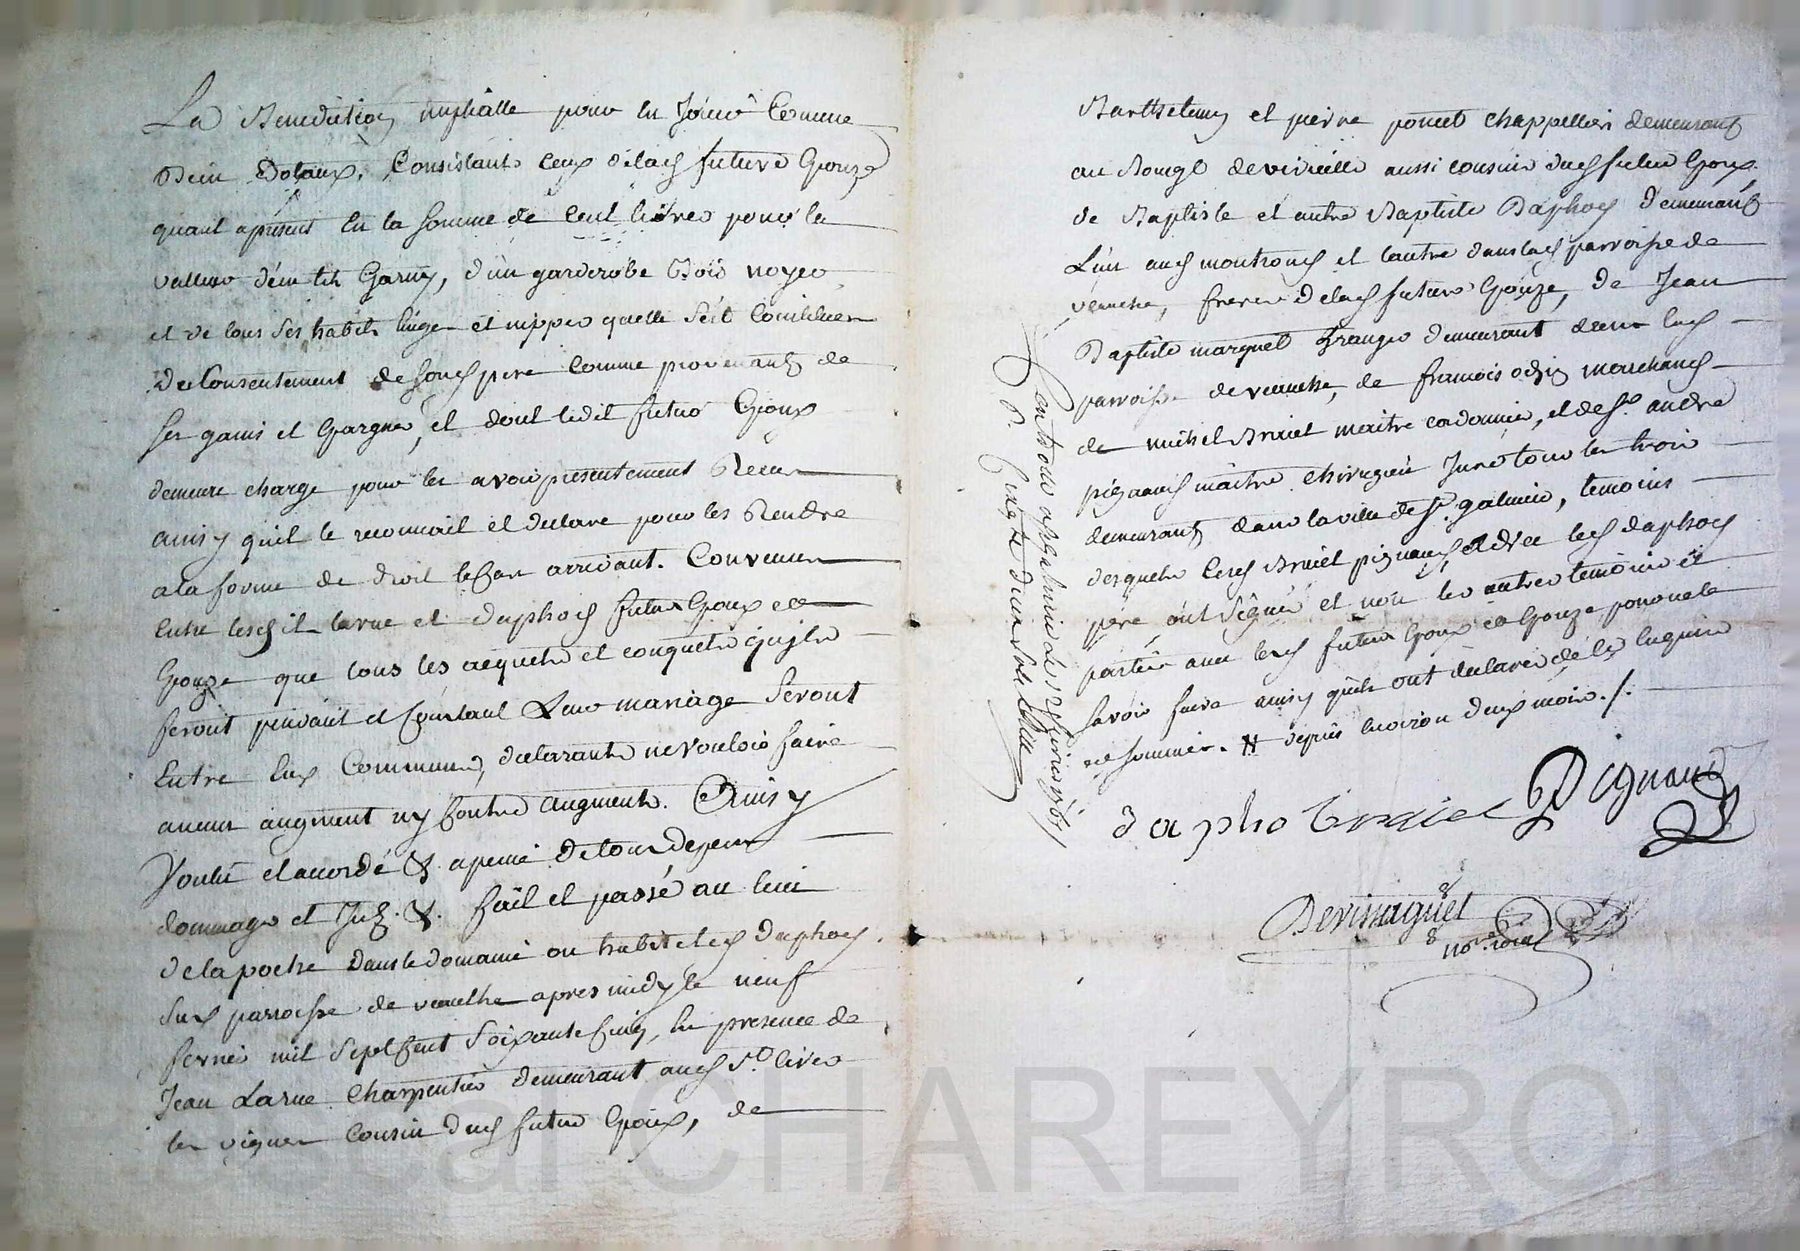 La Benediction nuptialle pour en Jouir Comme
Bien Dotaux, Consistants Ceux delad future Epouze
quant apresent En la somme de Cent livres pour la
valleur d'un lit Garny, d'un garderobe Bois noyer
et de tous ses habits linges et nippes quelle s'est Constituée
du Consentement de soud pere comme provenants de
ses gains et Epargnes, et dont ledit futur Epoux
demeure chargé pour les avoir presentement Receu
ainsy quil le reconnait et declare pour les Rendre
a la forme de droit le Cas arrivant. Convenu
Entre lesd larue et daphod futur Epoux et
Epouze que tous les acquets et conquets quils
feront pendant et Constant Leur mariage seront
Entre Eux Communs, declarants ne vouloir faire
aucun augment ny Contre augment. Ainsy
Voulu et accordé & a peine de tous depens
dommages et &. fait et passé au lieu
de la poche dans le domaine ou habite led daphod
sus parroisse de veauche apres midy le neuf
fevrier mil sept Cent soixante Cinq, En presence de
Jean Larue Charpentier demeurant aud
les vignes Cousin dud futur Epoux, de
Barthelemy et pierre poncet chappellier demeurants
au Rouge de viricelle aussi cousins dud futur Epoux
de Baptiste et autre Baptiste Daphod demeurants
L'un aud montrond et l'autre dans lad parroisse de
veauche, freres delad future Epouze, de Jean
Baptiste marquet Granger demeurant dans lad
parroisse de veauche, de francois odin marchand
de michel Bruiel maitre cordonnier, et de sr. andré
pignaud maitre chirugien Juré tous les trois
demeurants dans la ville de St. galmier, temoins
desquels lesd Bruiel pignaud et led daphod
pere ont signé et non les autres temoins et
parties avec lesd futur Epoux et Epouze pour ne le
savoir faire ainsy quils ont declaré de ce Enquis
et sommés. # depuis Environ deux mois ./.
Controllé a St galmier le 12 fevrier 1765
R.
daphod Pignaud
Devissaguet
nore. roial
Pascal CHAREYRON